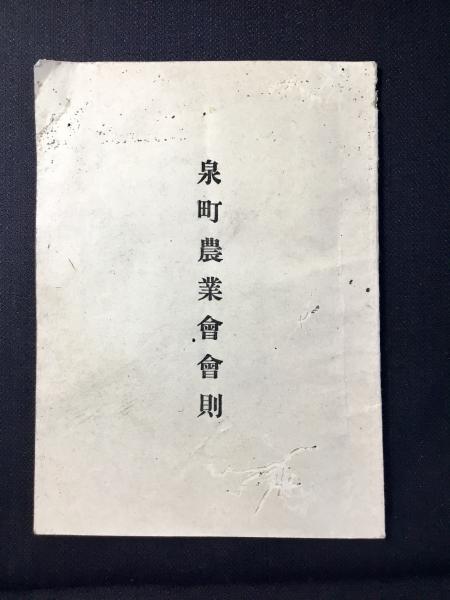 泉町農業會會則